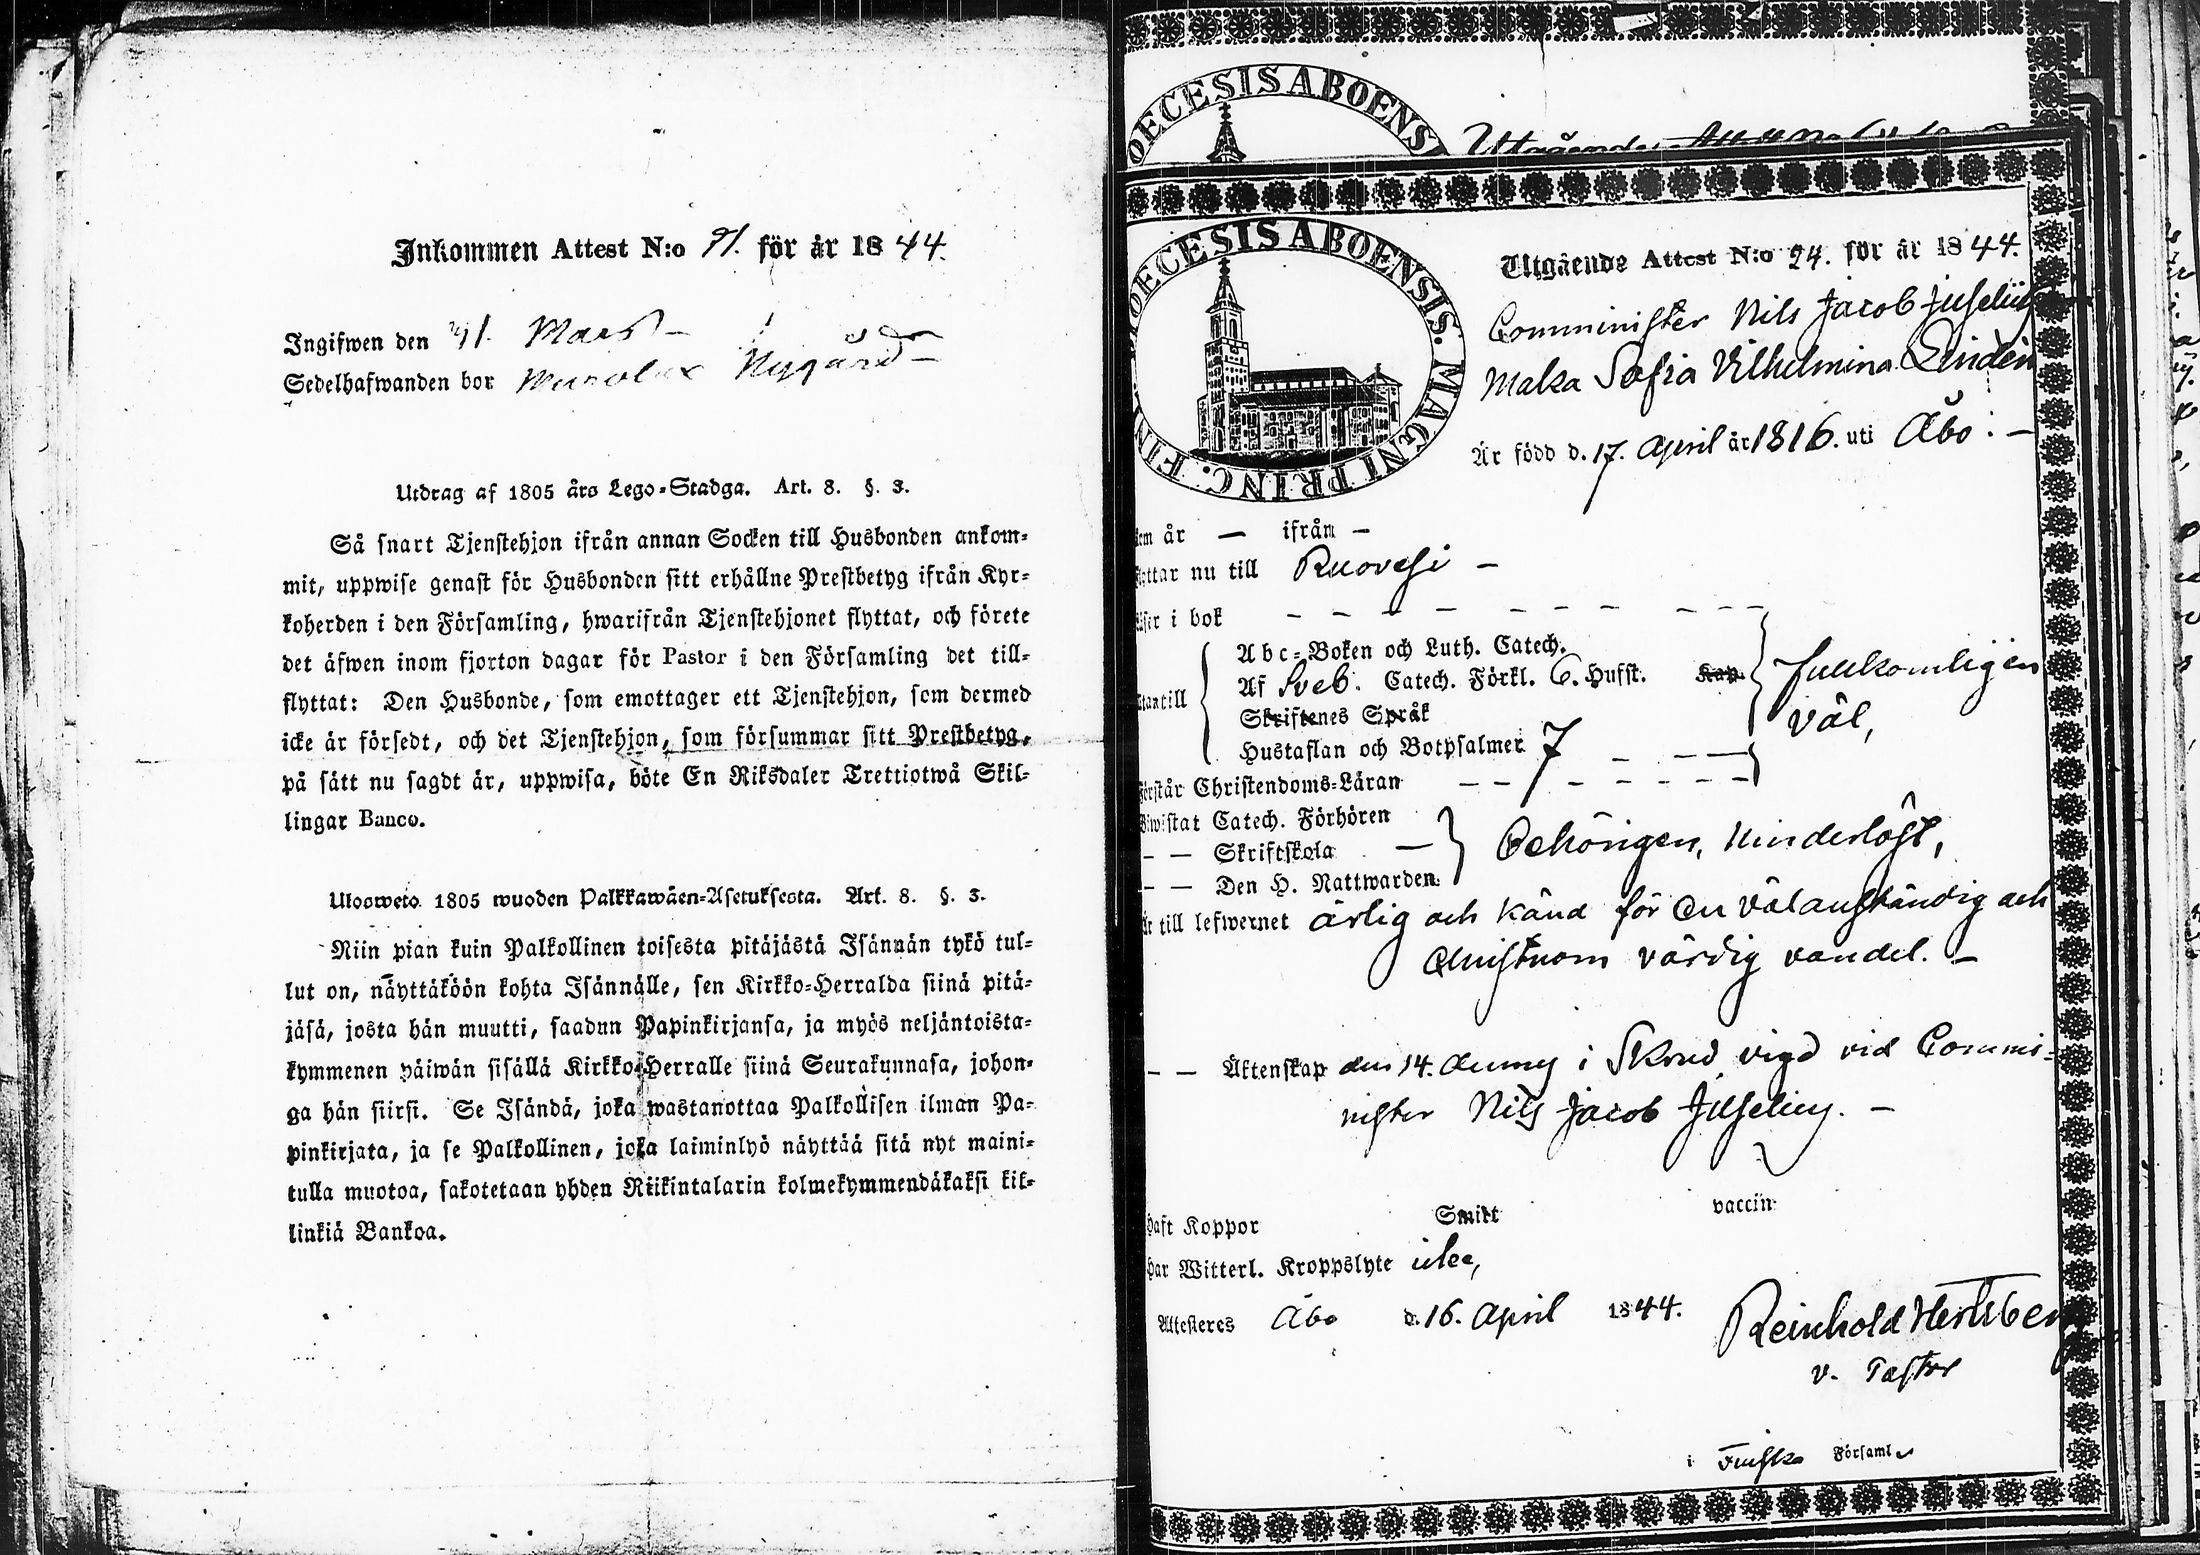 Inkommen Attest N:o 91. för år 1844.
Ingifwen den 31. Mars
Sedelhafwanden bor Nygård
Utdrag af 1805 års Lego-Stadga. Art. 8. §. 3.
Så snart Tjenstehjon ifrån annan Socken till Husbonden ankom-
mit, uppwise genast för Husbonden sitt erhållne Prestbetyg ifrån Kyr-
koherden i den Församling, hwarifrån Tjenstehjonet flyttat, och förete
det äfwen inom fjorton dagar för Pastor i den Församling det till-
flyttat: Den Husbonde, som emottager ett Tjenstehjon, som dermed
icke är försedt, och det Tjenstehjon, som försummar sitt Prestbetyg,
på sätt nu sagdt är, uppwisa, böte En Riksdaler Trettiotwå Skil-
lingar Banco.
Uloswето 1805 wuoden Palkkawäen-Asetuksesta. Art. 8. §. 3.
Niin pian kuin Palkollinen toisesta pitäjästä Isännän tykö tul-
lut on, näyttäköön kohta Isännälle, sen Kirkko-Herralda siinä pitä-
jäsä, josta hän muutti, saadun Papinkirjansa, ja myös neljäntoista-
kymmenen päiwän sisällä Kirkko-Herralle siinä Seurakunnasa, johon-
ga hän siirsi. Se Isändä, joka wastanottaa Palkollisen ilman Pa-
pinkirjata, ja se Palkollinen, joka laiminlyö näyttää sitä nyt maini-
tulla muotoa, sakotetaan yhden Riikintalarin kolmekymmendäkaksi kil-
linkiä Bankoa.
OECESIS ABOENS
Utgående Attest No
DIOECESIS ABOENSIS. MAGNI PRINC. FIN
Utgående Attest N:o 24. för år 1844.
Comminister Nils Jacob Juselius
Maka Sofia Vilhelmina Lindén
Är född d. 17. April år 1816. uti Åbo. —
om år — ifrån —
yttar nu till Ruovesi —
äser i bok
Abc-Boken och Luth. Catech.
utantill Af Sveb. Catech. Förkl. 6. Hufst. Kap.
fullkomligen
Skriftenes Språk
väl,
Hustaflan och Botpsalmer 7
örstår Christendoms-Läran
Biwistat Catech. Förhören
— — Skriftskola — behörigen, hinderlöst,
— — Den H. Nattwarden
är till lefwernet ärlig och känd för en välanständig och
christnom värdig vandel. —
— — Äktenskap den 14. dennes i Stånd vigd vid Commi-
nister Nils Jacob Juselius. —
haft Koppor Smitt vaccin
har Witterl. Kroppslyte icke,
Attesteres Åbo d. 16. April 1844.
Reinhold Hertzberg
v. Pastor
i Finska Församl.